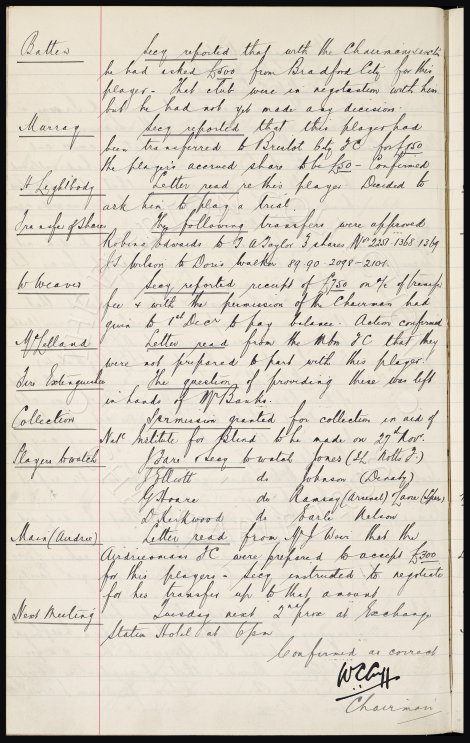 Batten Secy reported that with the Chairmans
he had asked £500 from Bradford City for this
player - That club were in negotiation with him
but he had not yet made any decision.
Murray Secy reported that this player had
been transferred to Bristol City FC for
the players accrued share to be £50 - Confirmed
H Lightbody Letter read re this player Decided to
ask him to play a trial
Transfer of Shares The following transfers were approved
Robina Edwards to T A Taylor 3 shares Nos 2251 1368 1369
Wilson to Doris Walker 89-90-2098-2101.
W Weaver Secy reported receipt of £750 on a/c of transfer
fee & with the permission of the Chairman had
given to 1st Decr to pay balance. Action confirmed
McLelland Letter read from the FC that they
were not prepared to part with this player.
Fire Extinguisher The question of providing these was left
in hands of Mr Banks.
Collection Permission granted for collection in aid of
Natl Institute for Blind to be made on 27th Nov.
Players to watch J Fare & Secy to watch Jones (I.L. Notts F.)
J Elliott do Johnson (Denaby)
G Hoare do Ramsay (Arsenal)
D Kirkwood do Earle Nelson
Main (Airdrie) Letter read from Mr J Weir that the
Airdrieonians FC were prepared to accept £300
for this players - Secy instructed to negotiate
for his transfer up to that amount
Next Meeting Tuesday next 2nd prox at Exchange
Station Hotel at 6pm
Confirmed as correct
W.C. Cuff
Chairman